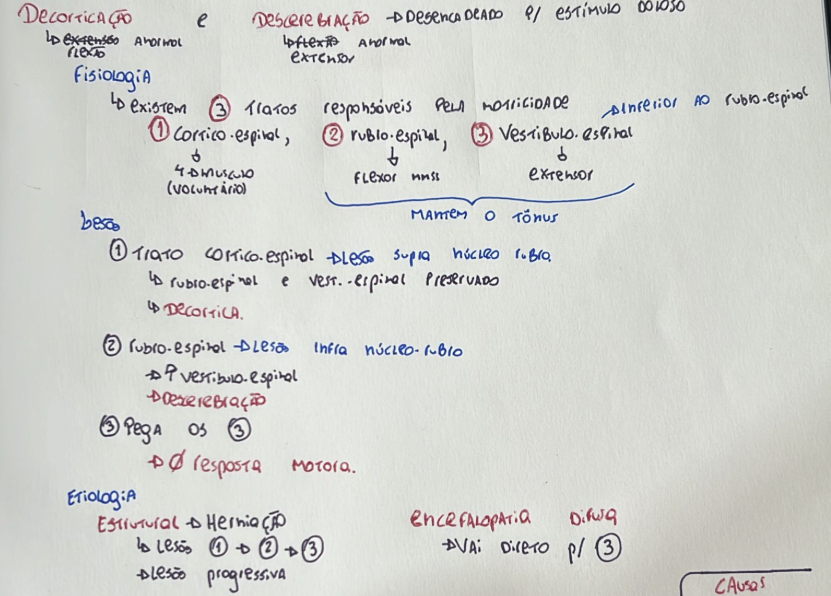 Decorticação e Descerebração → Desencadeado p/ estímulo doloso
↳ extensão Anormal ↳ flexão Anormal
flexão extensor
Fisiologia
↳ existem ③ Tratos responsáveis pela motricidade → Inferior ao rubro-espinal
① Cortico-espinal, ② rubro-espinal, ③ Vestibulo-espinal
↓ ↓ ↓
músculo flexor mmss extensor
(voluntário)
mantem o Tônus
Lesão
① Trato cortico-espinal → Lesão supra núcleo rubro
↳ rubro-espinal e vest.-espinal preservado
↳ Decortica.
② rubro-espinal → Lesão infra núcleo-rubro
→ ↑ vestibulo-espinal
→ Descerebração
③ Pega os ③
→ Ø resposta motora.
Etiologia
Estrutural → Herniação encefalopatia Difusa
↳ Lesão ① → ② → ③ → Vai Direto p/ ③
→ Lesão progressiva
Causas